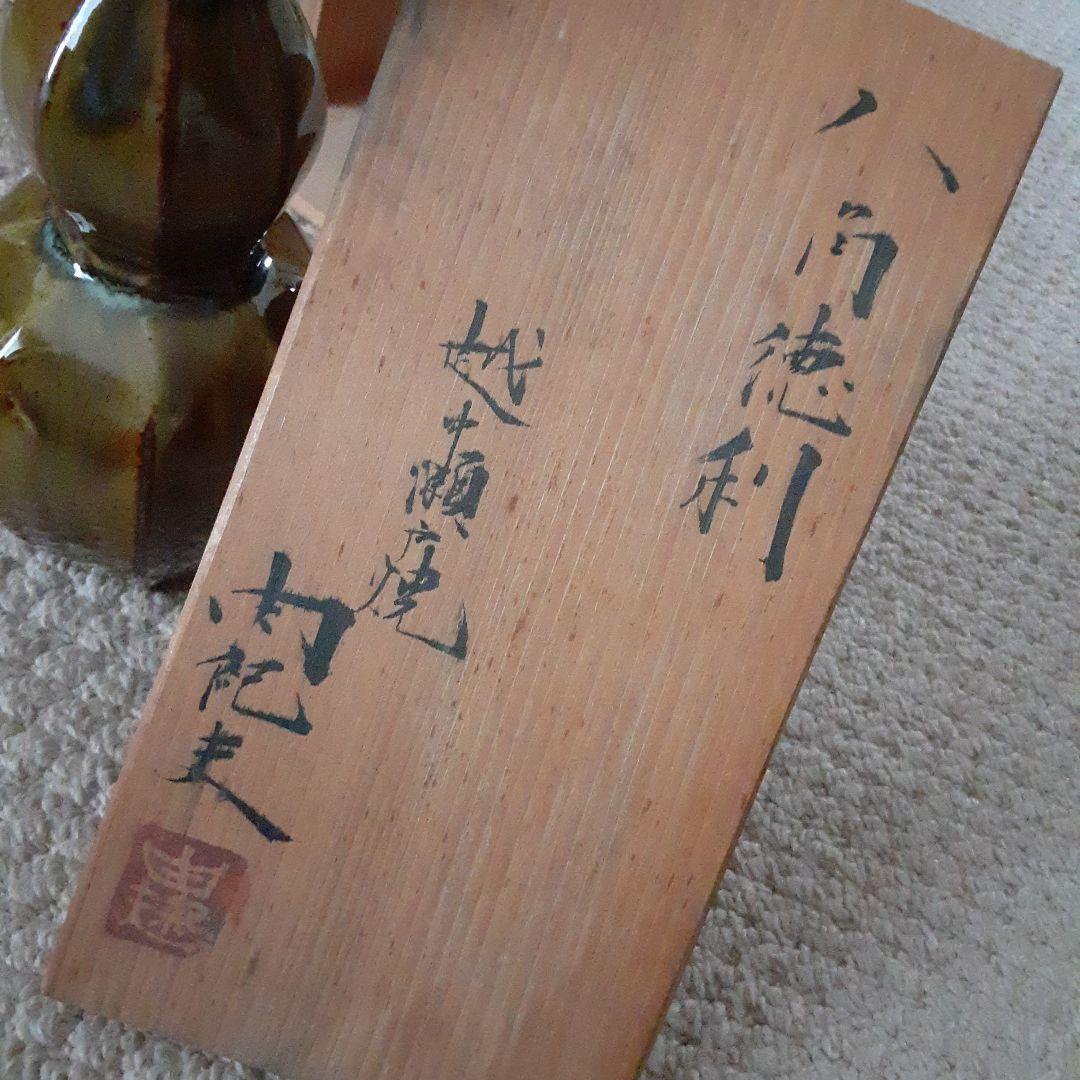 八角徳利
越中瀬戸焼
内紀夫